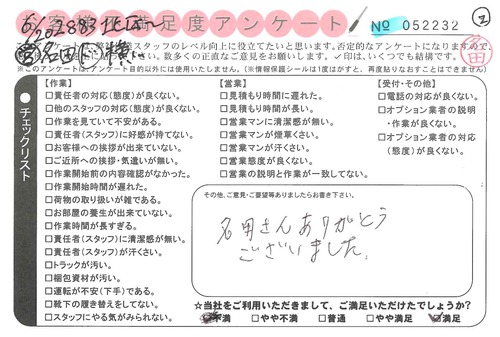 お客様満足度アンケート
№ 052232
②
スタッフのレベル向上に役立てたいと思います。否定的なアンケートになりますので、
数多くの正直なご意見をお願いします。✓印は、いくつでも結構です。
※このアンケートは、アンケート目的以外には使用いたしません。(※情報保護シールは1度はがすと、再度貼りなおすことはできません)
チェックリスト
【作業】
□責任者の対応(態度)が良くない。
□他のスタッフの対応(態度)が良くない。
□作業を見ていて不安がある。
□責任者(スタッフ)に好感が持てない。
□お客様への挨拶が出来ていない。
□ご近所への挨拶・気遣いが無い。
□作業開始前の内容確認がなかった。
□作業開始時間が遅れた。
□荷物の取り扱いが雑である。
□お部屋の養生が出来ていない。
□作業時間が長すぎる。
□責任者(スタッフ)に清潔感が無い。
□責任者(スタッフ)が汗くさい。
□トラックが汚い。
□梱包資材が汚い。
□運転が不安(下手)である。
□靴下の履き替えをしてない。
□スタッフにやる気がみられない。
【営業】
□見積もり時間に遅れた。
□見積もり時間が長い。
□営業マンに清潔感が無い。
□営業マンが煙草くさい。
□営業マンが汗くさい。
□営業態度が良くない。
□営業の説明と作業が一致してない。
【受付・その他】
□電話の対応が良くない。
□オプション業者の説明
・作業が良くない。
□オプション業者の対応
(態度)が良くない。
その他、ご意見・ご要望等ありましたらお書き下さい。
名田さんありがとう
ございました。
☆当社をご利用いただきまして、ご満足いただけたでしょうか?
不満 □やや不満 □普通 □やや満足 ☑満足